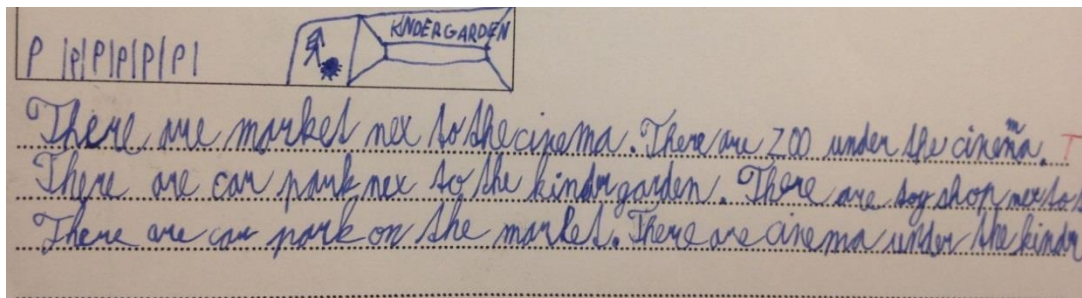 KINDERGARDEN
P |P|P|P|P|P|
There are market nex to the cinema. There are ZOO under the cinema. T
There are car park nex to the kindrgarden. There are toy shop nex to
There are car park on the market. There are cinema under the kindr